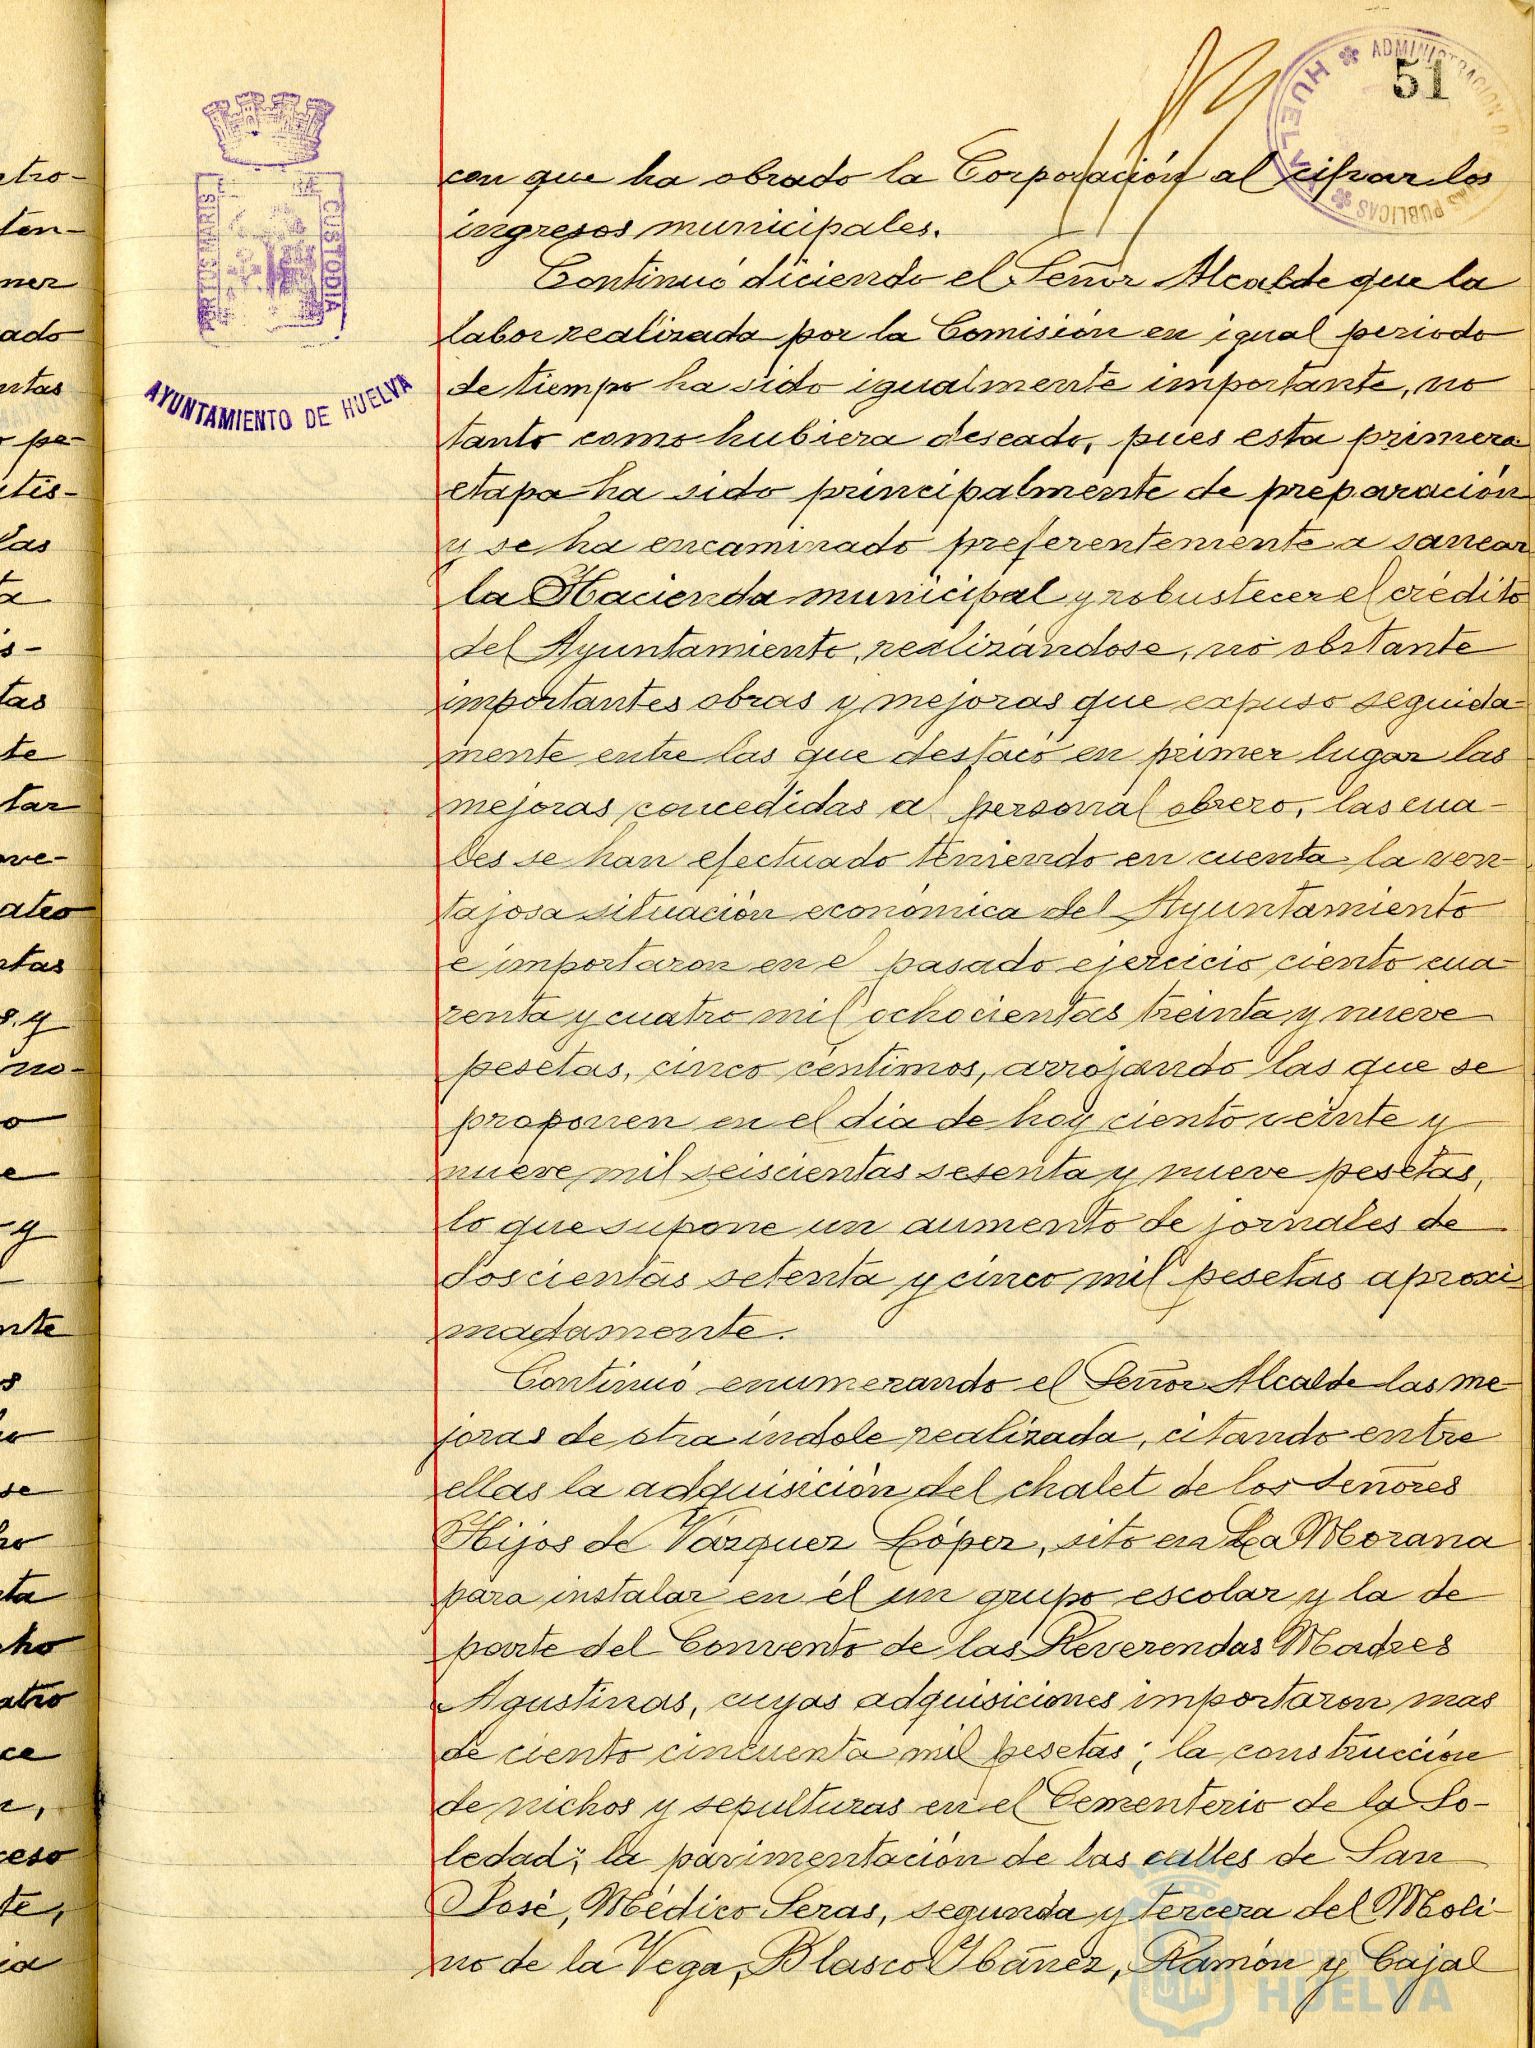 51
ADMINISTRACION
HUELVA
PUBLICAS
PORTUS MARIS
CUSTODIA
AYUNTAMIENTO DE HUELVA
con que ha obrado la Corporación al cifrar los
ingresos municipales.
Continuó diciendo el Señor Alcalde que la
labor realizada por la Comisión en igual periodo
de tiempo ha sido igualmente importante, no
tanto como hubiera deseado, pues esta primera
etapa ha sido principalmente de preparación
y se ha encaminado preferentemente a sanear
la Hacienda municipal y robustecer el crédito
del Ayuntamiento, realizándose, no obstante
importantes obras y mejoras que expuso seguida-
mente entre las que destacó en primer lugar las
mejoras concedidas al personal obrero, las cua-
les se han efectuado teniendo en cuenta la ven-
tajosa situación económica del Ayuntamiento
e importaron en el pasado ejercicio ciento cua-
renta y cuatro mil ochocientas treinta y nueve
pesetas, cinco céntimos, arrojando las que se
proponen en el dia de hoy ciento veinte y
nueve mil seiscientas sesenta y nueve pesetas,
lo que supone un aumento de jornales de
doscientas setenta y cinco mil pesetas aproxi-
madamente.
Continuó enumerando el Señor Alcalde las me-
joras de otra índole realizada, citando entre
ellas la adquisición del chalet de los Señores
Hijos de Vázquez López, sito en La Morana
para instalar en él un grupo escolar y la de
parte del Convento de las Reverendas Madres
Agustinas, cuyas adquisiciones importaron mas
de ciento cincuenta mil pesetas; la construcción
de nichos y sepulturas en el Cementerio de la So-
ledad; la pavimentación de las calles de San
José, Médico Seras, segunda y tercera del Moli-
no de la Vega, Blasco Ibáñez, Ramón y Cajal
Ayuntamiento de
HUELVA